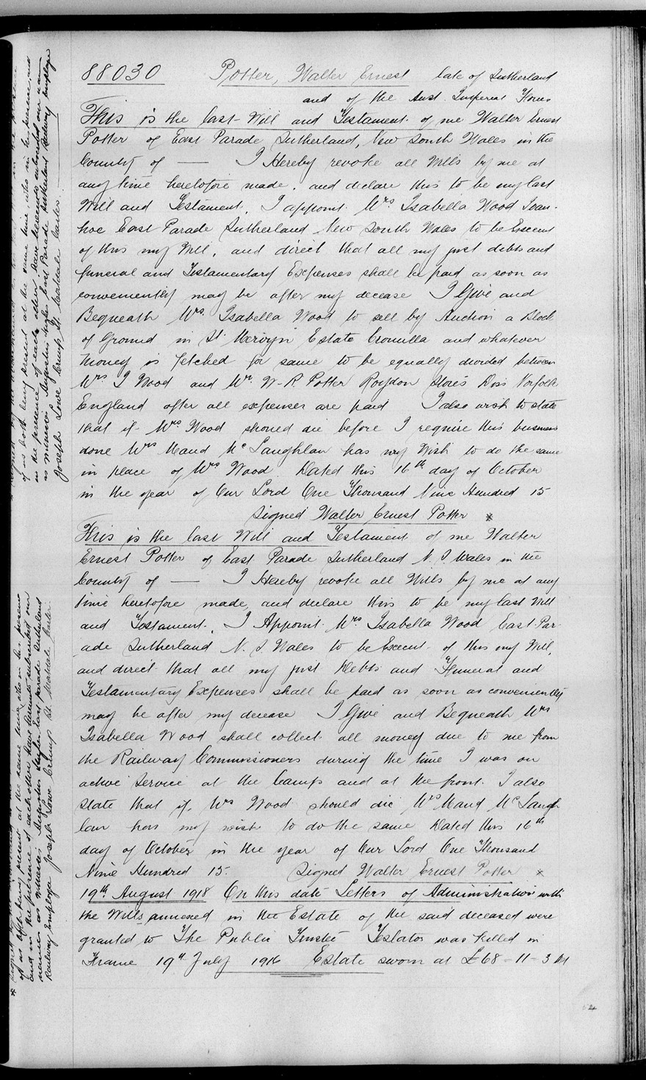 88030 Potter, Walter Ernest late of Sutherland
and of the Aust. Imperial Forces
This is the last Will and Testament of me Walter Ernest
Potter of East Parade Sutherland, New South Wales in the
County of — I Hereby revoke all Wills by me at
any time heretofore made, and declare this to be my last
Will and Testament. I appoint Mrs Isabella Wood Ivan-
hoe East Parade Sutherland New South Wales to be Execut
of this my Will, and direct that all my just debts and
funeral and Testamentary Expenses shall be paid as soon as
conveniently may be after my decease I Give and
Bequeath Mrs. Isabella Wood to sell by Auction a Block
of Ground in St. Mervyn Estate Cronulla and whatever
Money is fetched for same to be equally divided between
Mrs I Wood and Mr W-R Potter Roydon Stores Diss Norfolk
England after all expenses are paid I also wish to state
that if Mrs Wood should die before I require this business
done Mrs Maud McLaughlan has my Wish to do the same
in place of Mrs Wood Dated this 16th day of October
in the year of Our Lord One Thousand Nine Hundred 15
Signed Walter Ernest Potter *
This is the last Will and Testament of me Walter
Ernest Potter of East Parade Sutherland N. S Wales in the
County of — I Hereby revoke all Wills by me at any
time heretofore made, and declare this to be my last Will
and Testament. I Appoint Mrs Isabella Wood East Par-
ade Sutherland N. S Wales to be Execut of this my Will,
and direct that all my just Debts and Funeral and
Testamentary Expenses shall be paid as soon as conveniently
may be after my decease I Give and Bequeath Mrs
Isabella Wood shall collect all money due to me from
the Railway Commissioners during the time I was on
active Service at the Camps and at the front. I also
state that if Mrs Wood should die Mrs Maud McLaugh-
lan has my wish to do the same Dated this 16th
day of October in the year of Our Lord One Thousand
Nine Hundred 15. Signed Walter Ernest Potter *
19th August 1918 On this date Letters of Administration with
the Wills annexed in the Estate of the said deceased were
granted to The Public Trustee Testator was killed in
France 19th July 1916 Estate sworn at £68-11-3
of us both being present at the same time who in his presence and
in the presence of each other have hereunto subscribed our names
as witnesses Augustus East Parade Sutherland Railway Employe
Joseph Lowe
of us both being present at the same time who in his presence
and in the presence of each other have hereunto subscribed our
names as witnesses Augustus East Parade Sutherland
Railway Employe Joseph Lowe